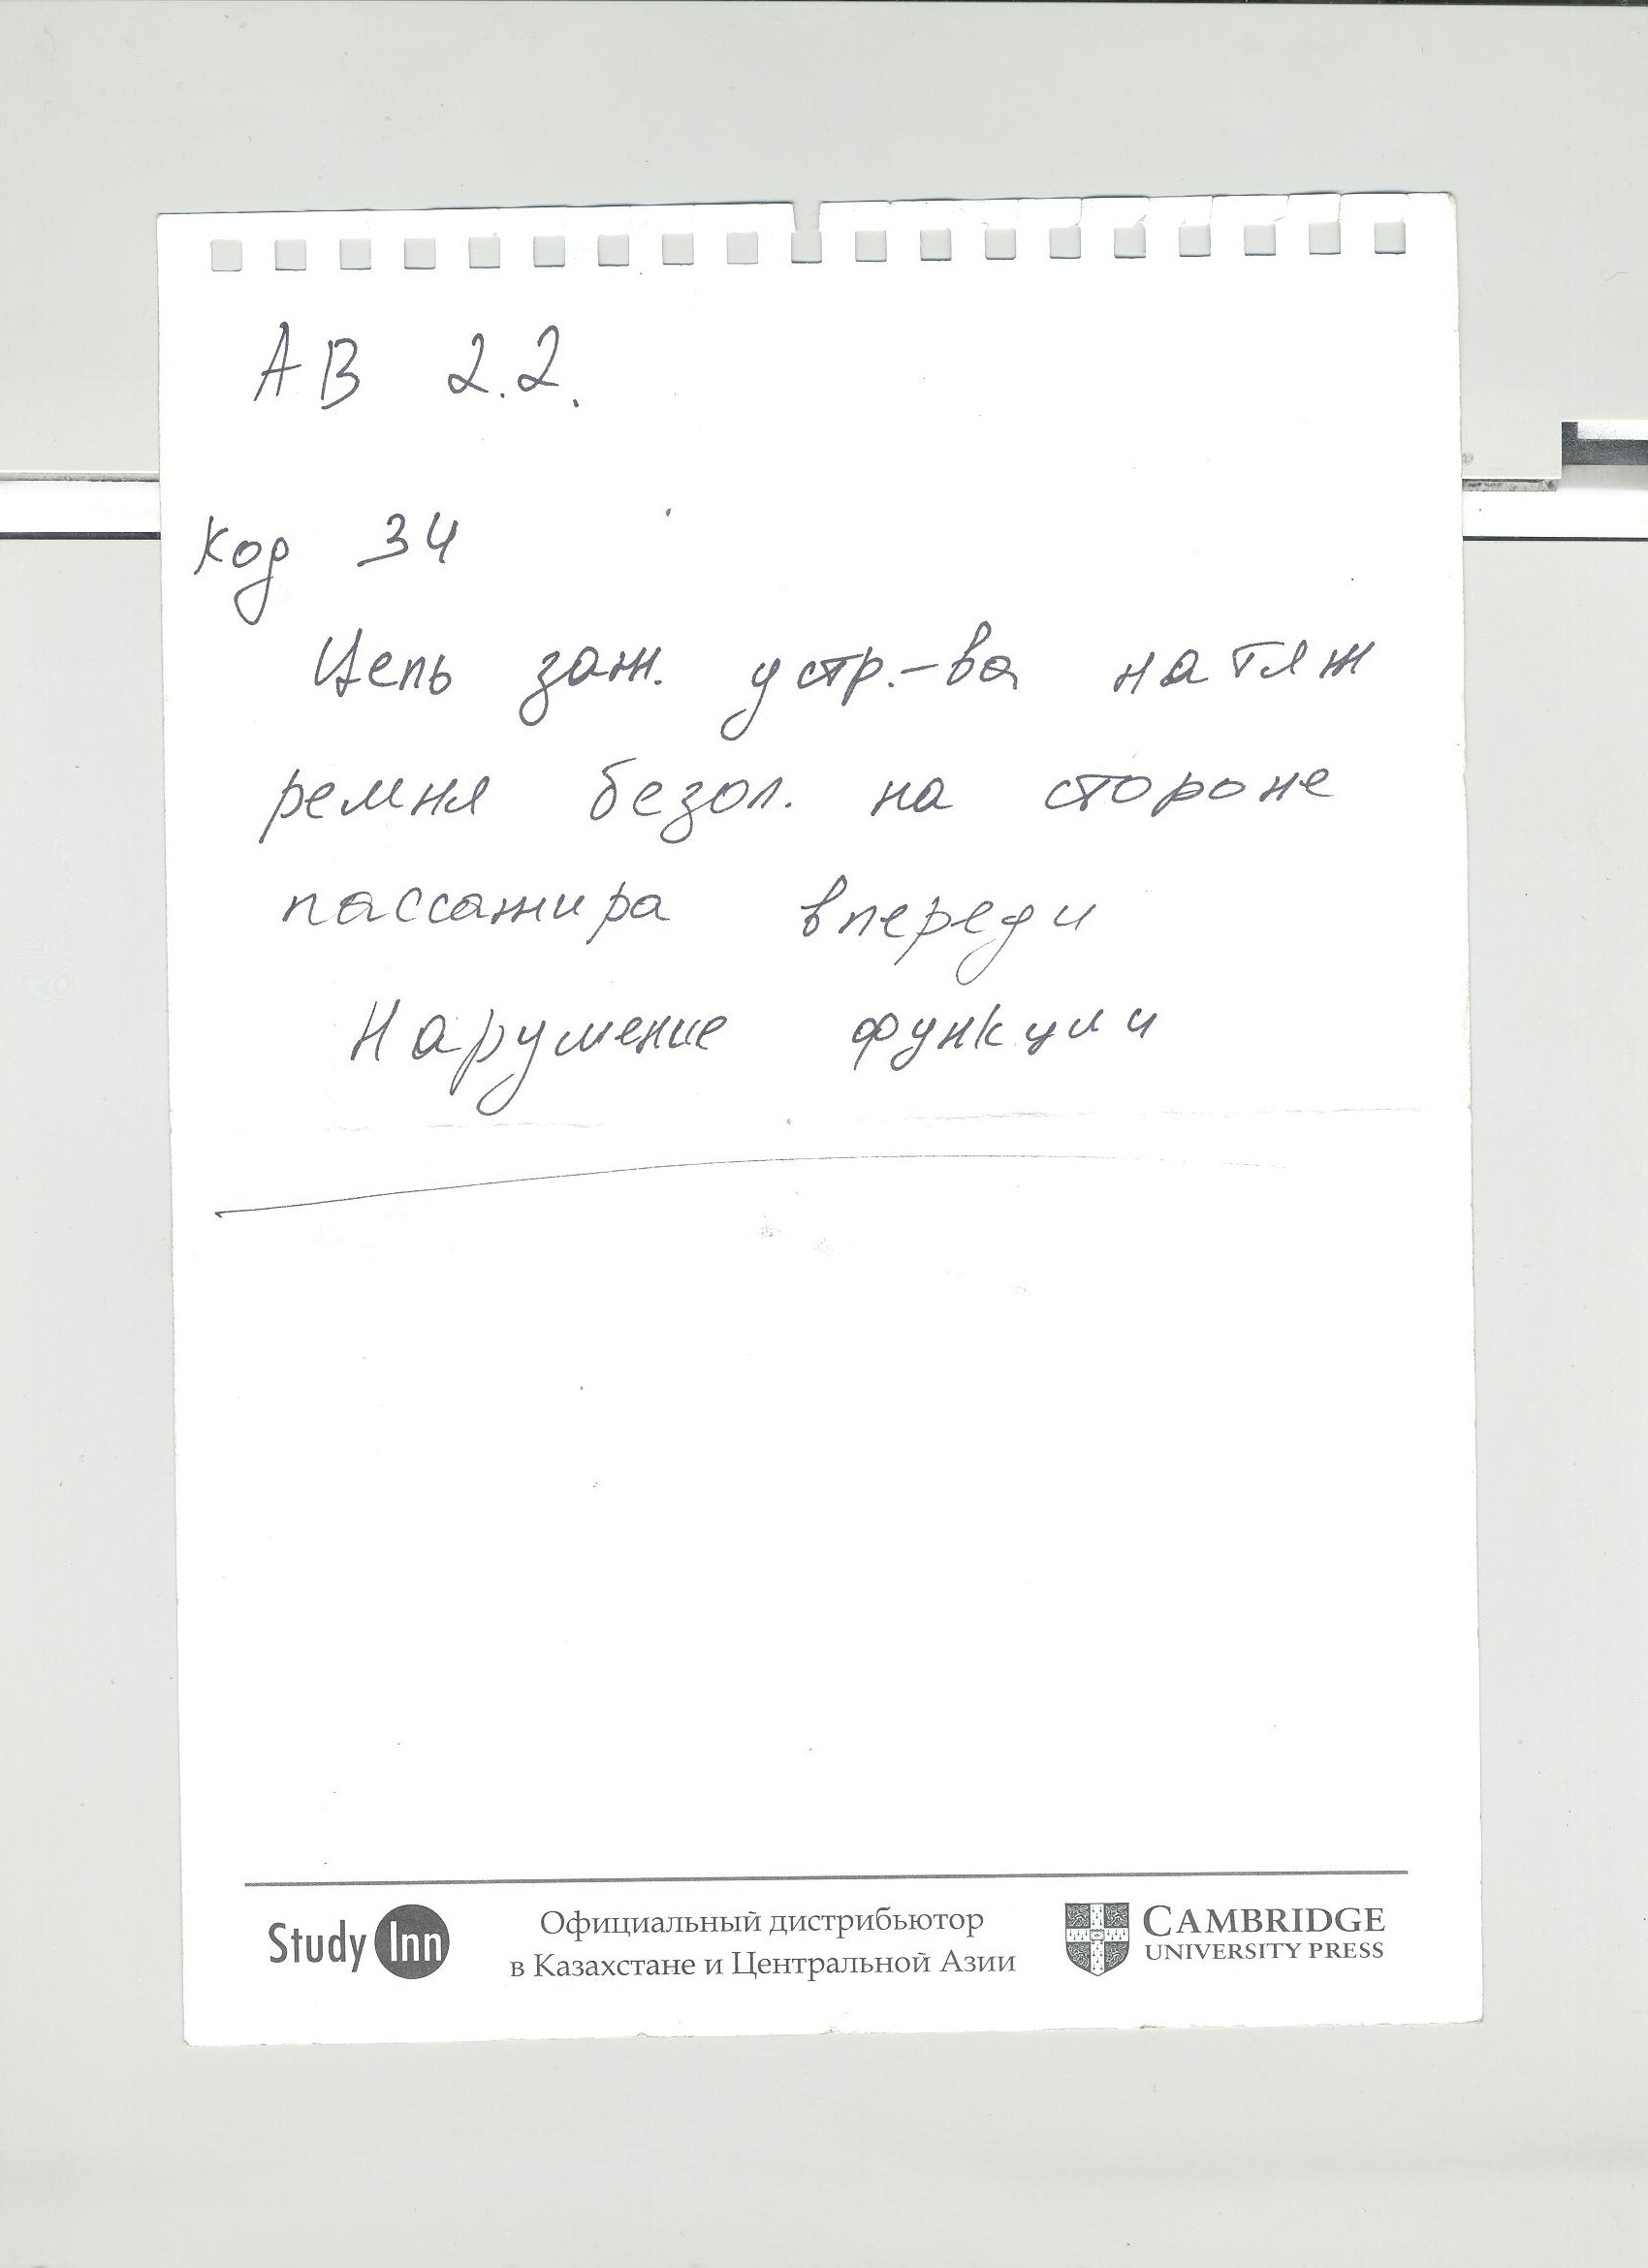 АВ 2.2.
Код 34
Цепь заж. устр.-ва натяж
ремня безоп. на стороне
пассажира впереди
Нарушение функции
Study Inn
Официальный дистрибьютор
в Казахстане и Центральной Азии
CAMBRIDGE
UNIVERSITY PRESS